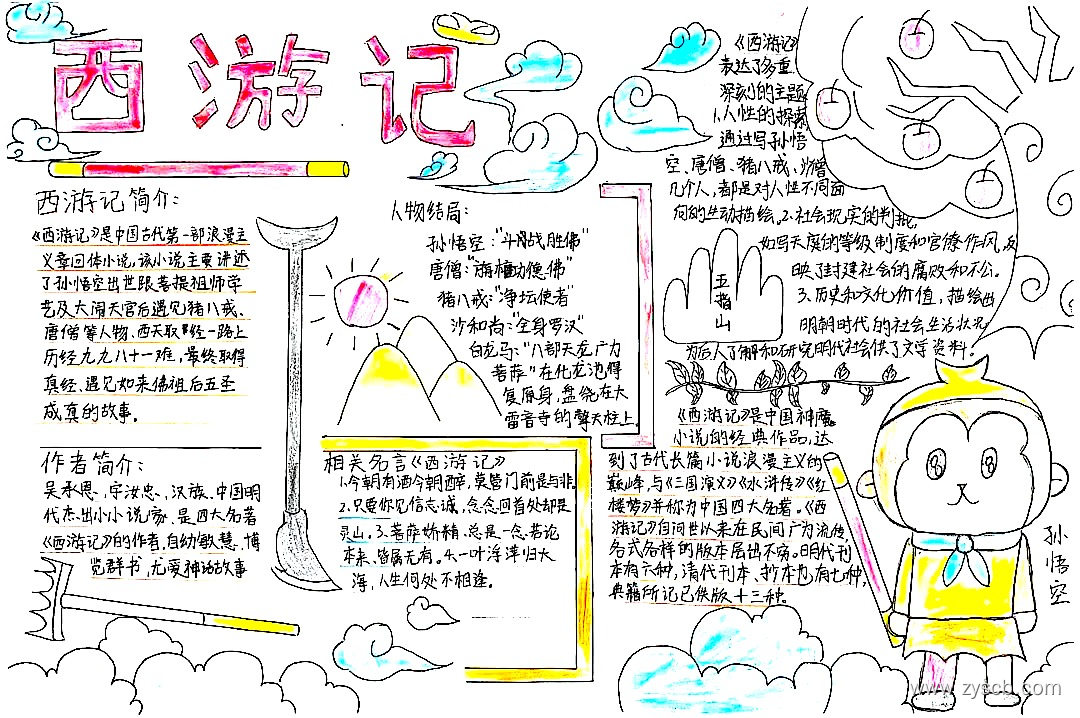 西游记
西游记简介:
《西游记》是中国古代第一部浪漫主
义章回体小说,该小说主要讲述
了孙悟空出世跟菩提祖师学
艺及大闹天宫后遇见猪八戒、
唐僧等人物、西天取经一路上
历经九九八十一难,最终取得
真经、遇见如来佛祖后五圣
成真的故事。
作者简介:
吴承恩,字汝忠,汉族,中国明
代杰出小小说家,是四大名著
《西游记》的作者,自幼敏慧,博
览群书,尤爱神话故事
人物结局:
孙悟空:"斗战胜佛"
唐僧:"旃檀功德佛"
猪八戒:"净坛使者"
沙和尚:"全身罗汉"
白龙马:"八部天龙广力
菩萨"在化龙池得
复原身,盘绕在大
雷音寺的擎天柱上
相关名言《西游记》
1.今朝有酒今朝醉,莫管门前是与非
2.只要你见信志诚,念念回首处却是
灵山。3.菩萨娇精,总是一念,若论
本来、皆属无有。4.一叶浮萍归大
海,人生何处不相逢。
《西游记》
表达了多重
深刻的主题
1.人性的探索
通过写孙悟
空、唐僧、猪八戒、沙僧
几个人,都是对人性不同面
向的生动描绘。2.社会现实的判批,
如写天庭的等级制度和官僚作风,反
映了封建社会的腐败和不公。
3.历史和文化价值,描绘出
明朝时代的社会生活状况
为后人了解和研究明代社会供了文字资料。
五
指
山
《西游记》是中国神魔
小说的经典作品,达
到了古代长篇小说浪漫主义的
巅峰,与《三国演义》《水浒传》《红
楼梦》并称为中国四大名著。《西
游记》自问世以来在民间广为流传,
各式各样的版本层出不穷。明代刊
本有六种,清代刊本、抄本也有七种,
典籍所记已佚版十三种。
孙
悟
空
www.zyscb.com